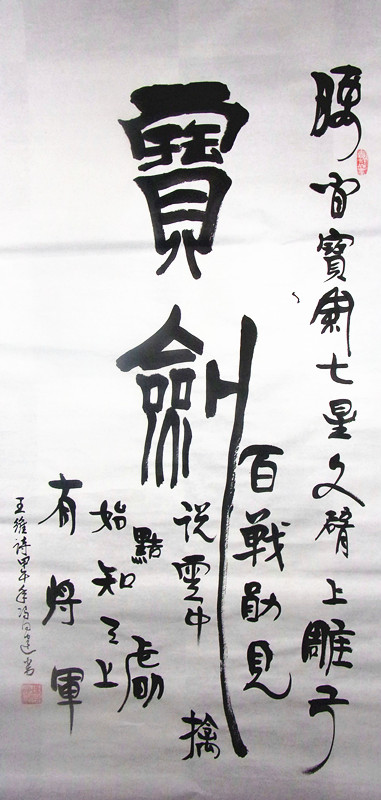 腰间寶劍七星文臂上雕弓
寶劍
百戰勛見
说雲中擒
黠虜
始知天上
有將軍
王維詩甲午年冯同建書